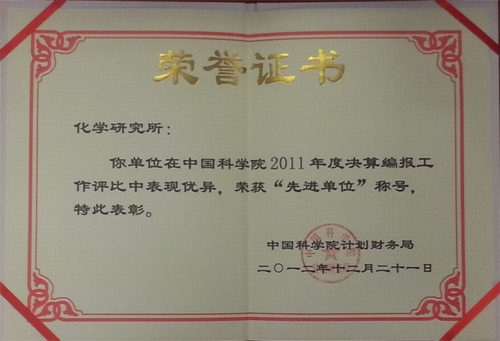 荣誉证书
化学研究所：
你单位在中国科学院2011年度决算编报工
作评比中表现优异，荣获“先进单位”称号，
特此表彰。
中国科学院计划财务局
二〇一二年十二月二十一日